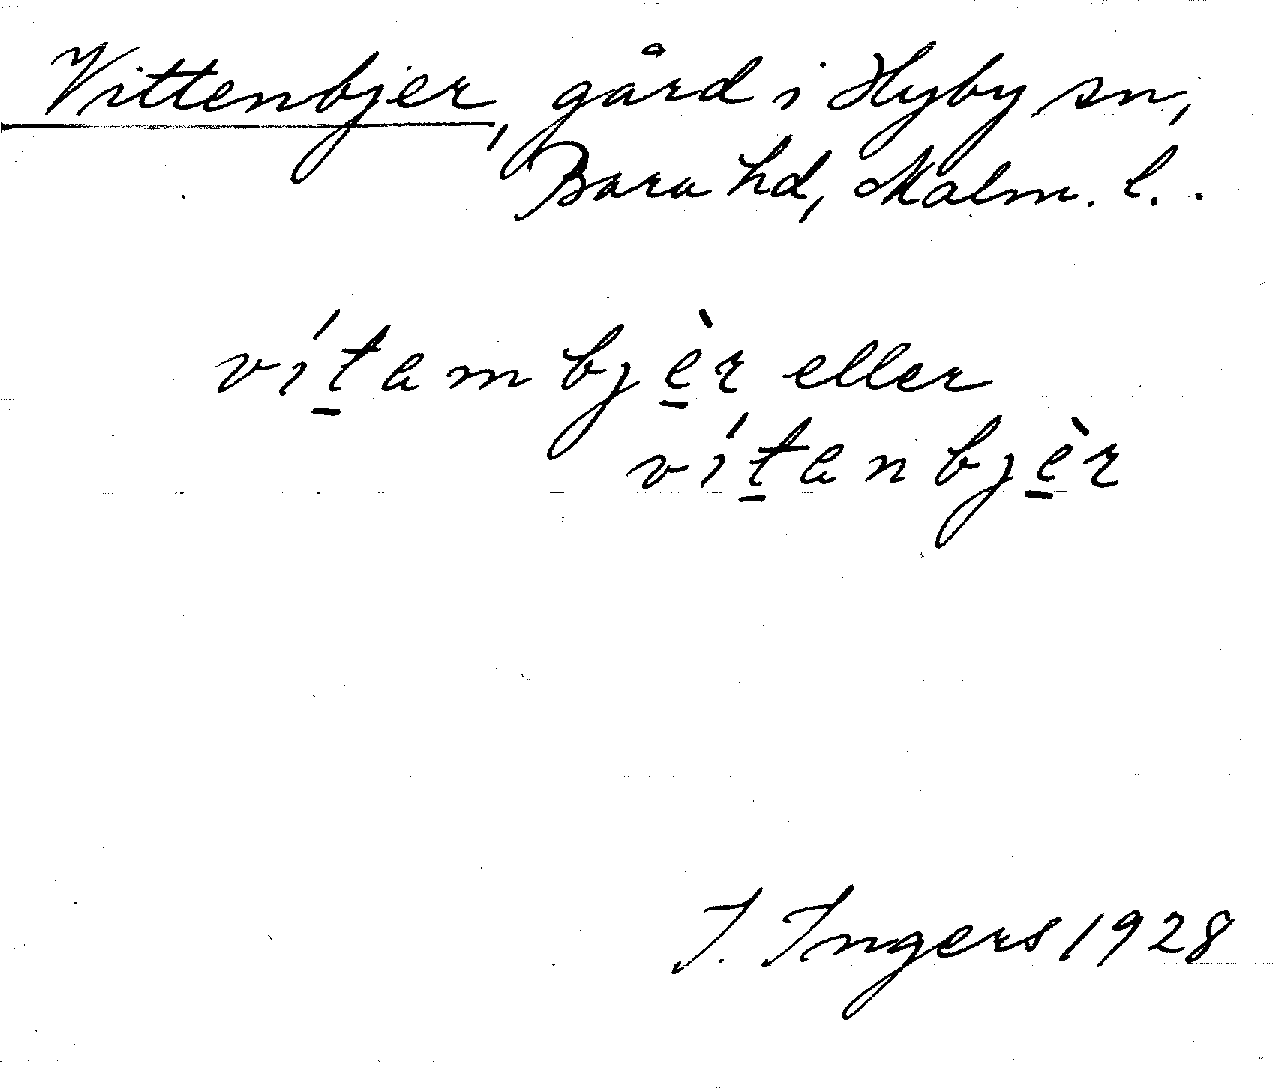 Vittenbjer, gård i Hyby sn,
Bara hd, Malm. l..
vít̲ambjè̲r eller
vít̲anbjè̲r
I. Ingers 1928